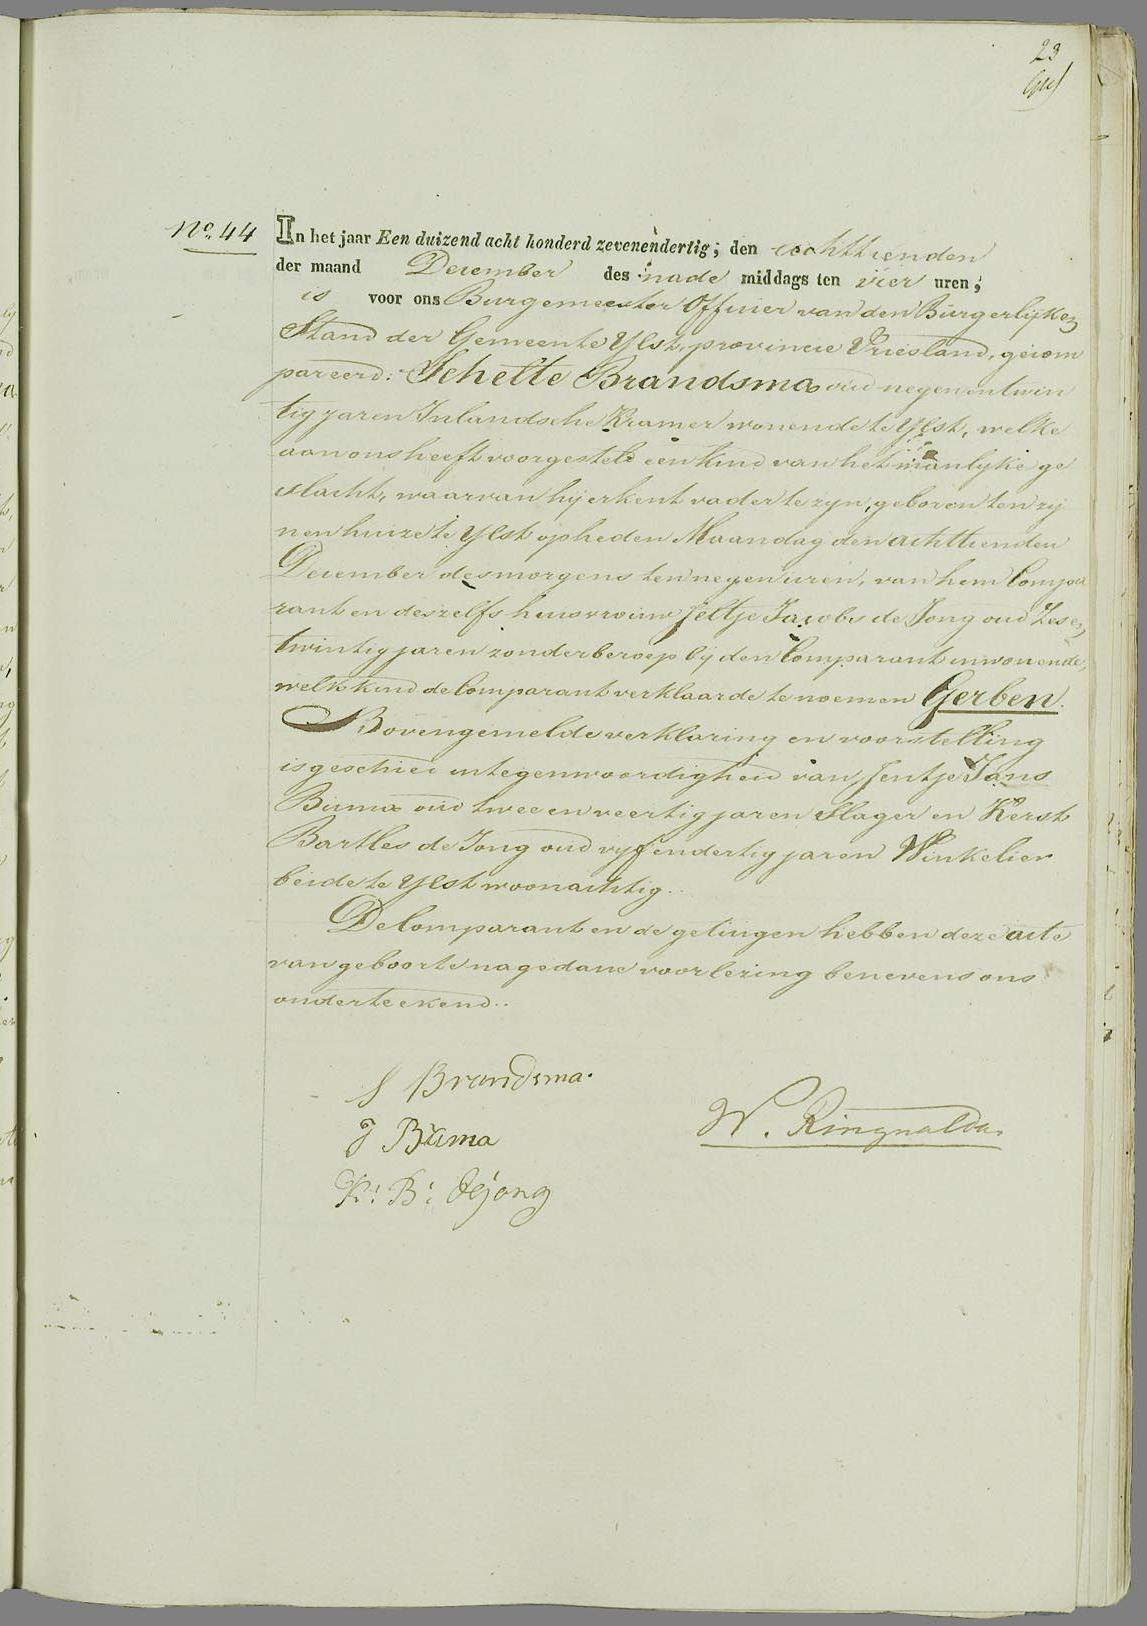 23
No. 44
In het jaar Een duizend acht honderd zevenendertig; den achttienden
der maand December des nade middags ten vier uren;
is voor ons Burgemeester Officier van den Burgerlyken
Stand der Gemeente Ylst, provincie Vriesland, gecom
pareerd: Schelte Brandsma oud negenentwin
tig jaren Inlandsche Kramer wonende te Ylst, welke
aan ons heeft voorgesteld een kind van het manlyke ge
slacht, waarvan hij erkent vader te zyn, geboren ten zy
nen huize te Ylst op heden Maandag den achttienden
December des morgens ten negen uren, van hem Compa
rant en deszelfs huisvrouw Jeltje Jacobs de Jong oud Zes en
twintig jaren zonder beroep bij den Comparant inwonende,
welk kind de Comparant verklaarde te noemen Gerben.
Bovengemelde verklaring en voorstelling
is geschied in tegenwoordigheid van Jentje Jans
Buma oud twee en veertig jaren Slager en Kerst
Bartles de Jong oud vyf en dertig jaren Winkelier
beide te Ylst woonachtig..
De Comparant en de getuigen hebben deze acte
van geboorte na gedane voorlezing benevens ons
onderteekend..
S Brandsma.
J Buma
K: B: de jong
W. Ringnalda.